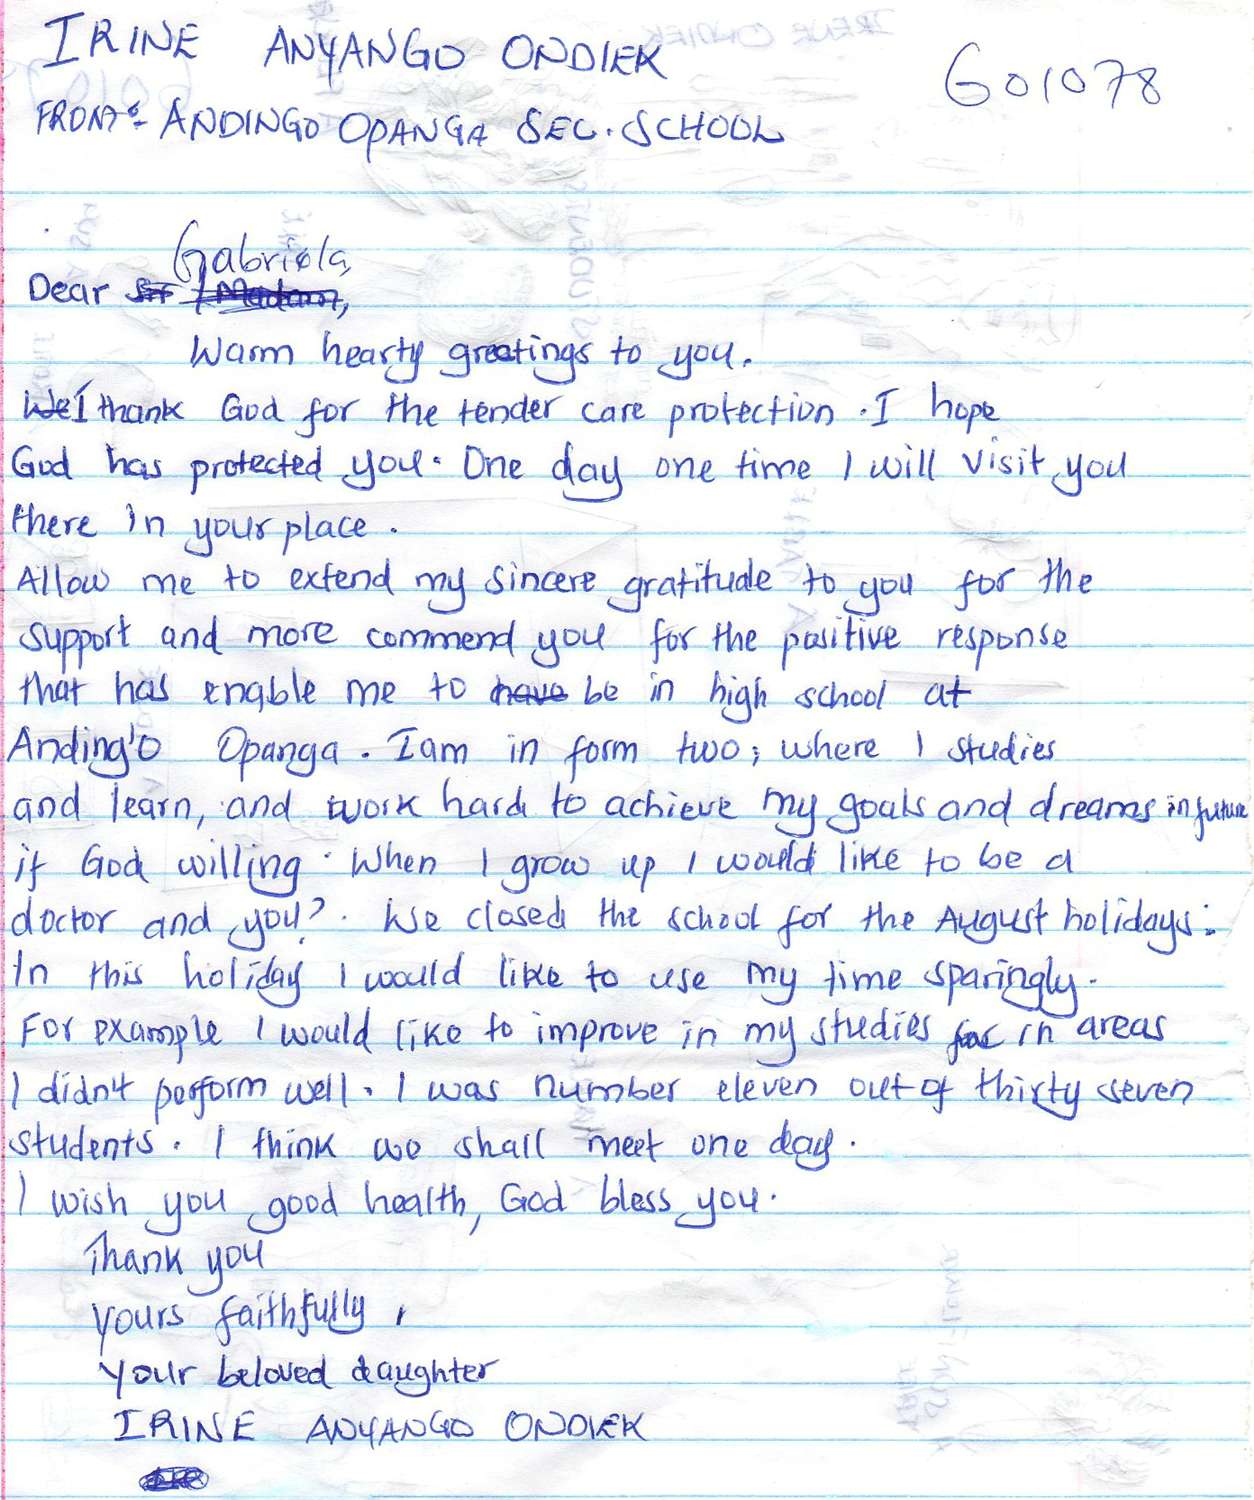 IRINE ANYANGO ONDIEK
G01078
FROM:- ANDINGO OPANGA SEC. SCHOOL
Gabriela,
Dear Sir / Madam,
Warm hearty greetings to you.
We I thank God for the tender care protection. I hope
God has protected you. One day one time I will visit you
there in your place.
Allow me to extend my sincere gratitude to you for the
support and more commend you for the positive response
that has enable me to have be in high school at
Anding'o Opanga. I am in form two; where I studies
and learn, and work hard to achieve my goals and dreams in future
if God willing. When I grow up I would like to be a
doctor and you?. We closed the school for the August holidays.
In this holiday I would like to use my time sparingly.
For example I would like to improve in my studies for in areas
I didn't perform well. I was number eleven out of thirty seven
students. I think we shall meet one day.
I wish you good health, God bless you.
Thank you
Yours faithfully,
Your beloved daughter
IRINE ANYANGO ONDIEK